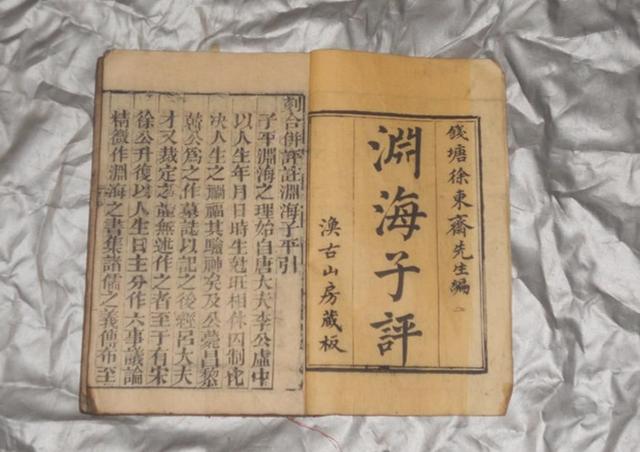 錢塘徐東齋先生編
淵海子評
渙古山房藏板
刻合併評註淵海子平引
子平淵海之理始自唐大夫李公虛中
以人生年月日時生尅旺相休囚制化
决人生之禍福其驗神矣及公薨昌黎
韓公爲之作墓誌以記之後經呂大夫
才又裁定之並無述作之者至于有宋
徐公升復以人生日主分作六事議論
精微作淵海之書集諸儒之義傳布至